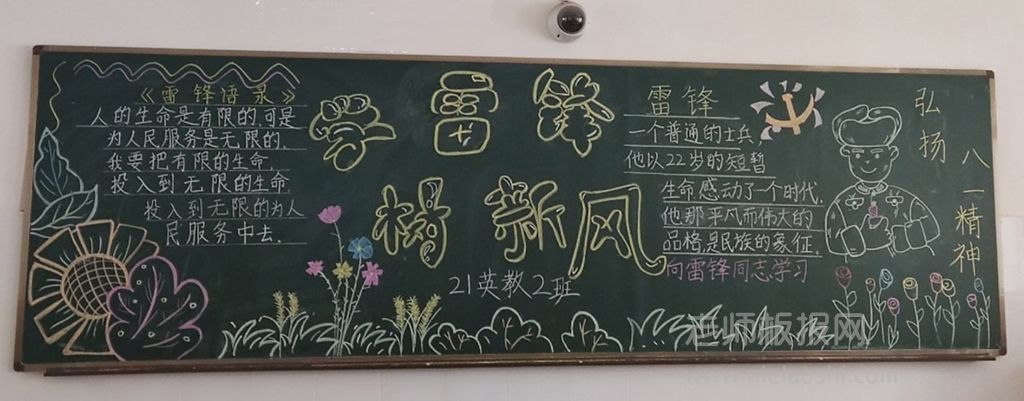 《雷锋语录》
人的生命是有限的,可是
为人民服务是无限的,
我要把有限的生命,
投入到无限的生命,
投入到无限的为人
民服务中去。
学雷锋
树新风
21英教2班
雷锋
一个普通的士兵,
他以22岁的短暂
生命感动了一个时代,
他那平凡而伟大的
品格,是民族的象征。
向雷锋同志学习
弘扬
八一精神
老师板报网